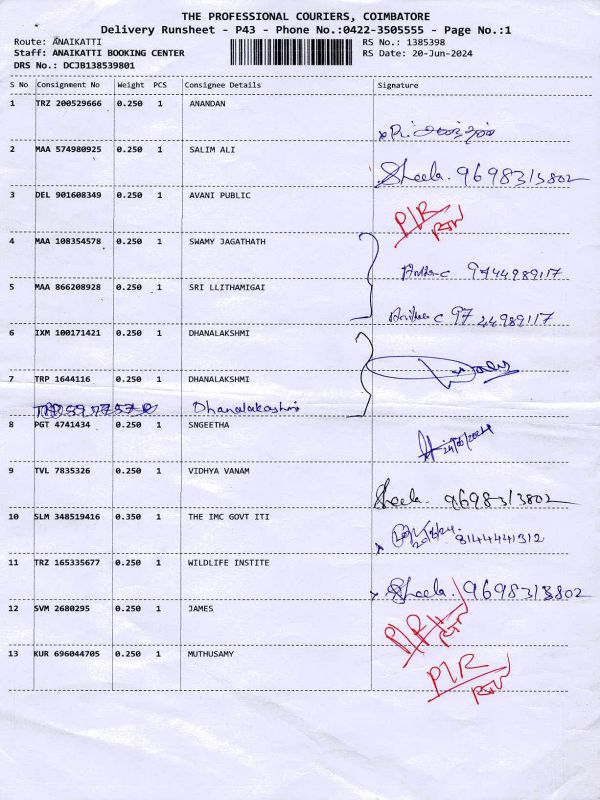 THE PROFESSIONAL COURIERS, COIMBATORE
Delivery Runsheet - P43 - Phone No.:0422-3505555 - Page No.:1
Route: ANAIKATTI RS No.: 1385398
Staff: ANAIKATTI BOOKING CENTER RS Date: 20-Jun-2024
DRS No.: DCJB138539801
S No Consignment No Weight PCS Consignee Details Signature
1 TRZ 200529666 0.250 1 ANANDAN
2 MAA 574980925 0.250 1 SALIM ALI
Sheela. 9698313802
3 DEL 901608349 0.250 1 AVANI PUBLIC
P/R
RTN
4 MAA 108354578 0.250 1 SWAMY JAGATHATH
9744989117
5 MAA 866208928 0.250 1 SRI LLITHAMIGAI
97 44989117
6 IXM 100171421 0.250 1 DHANALAKSHMI
7 TRP 1644116 0.250 1 DHANALAKSHMI
Dhanalakashmi
8 PGT 4741434 0.250 1 SNGEETHA
9 TVL 7835326 0.250 1 VIDHYA VANAM
Sheela. 9698313802
10 SLM 348519416 0.350 1 THE IMC GOVT ITI
20/6/24. 8144441312
11 TRZ 165335677 0.250 1 WILDLIFE INSTITE
Sheela. 9698313802
12 SVM 2680295 0.250 1 JAMES
P/R
RTN
13 KUR 696044705 0.250 1 MUTHUSAMY
P/R
RTN